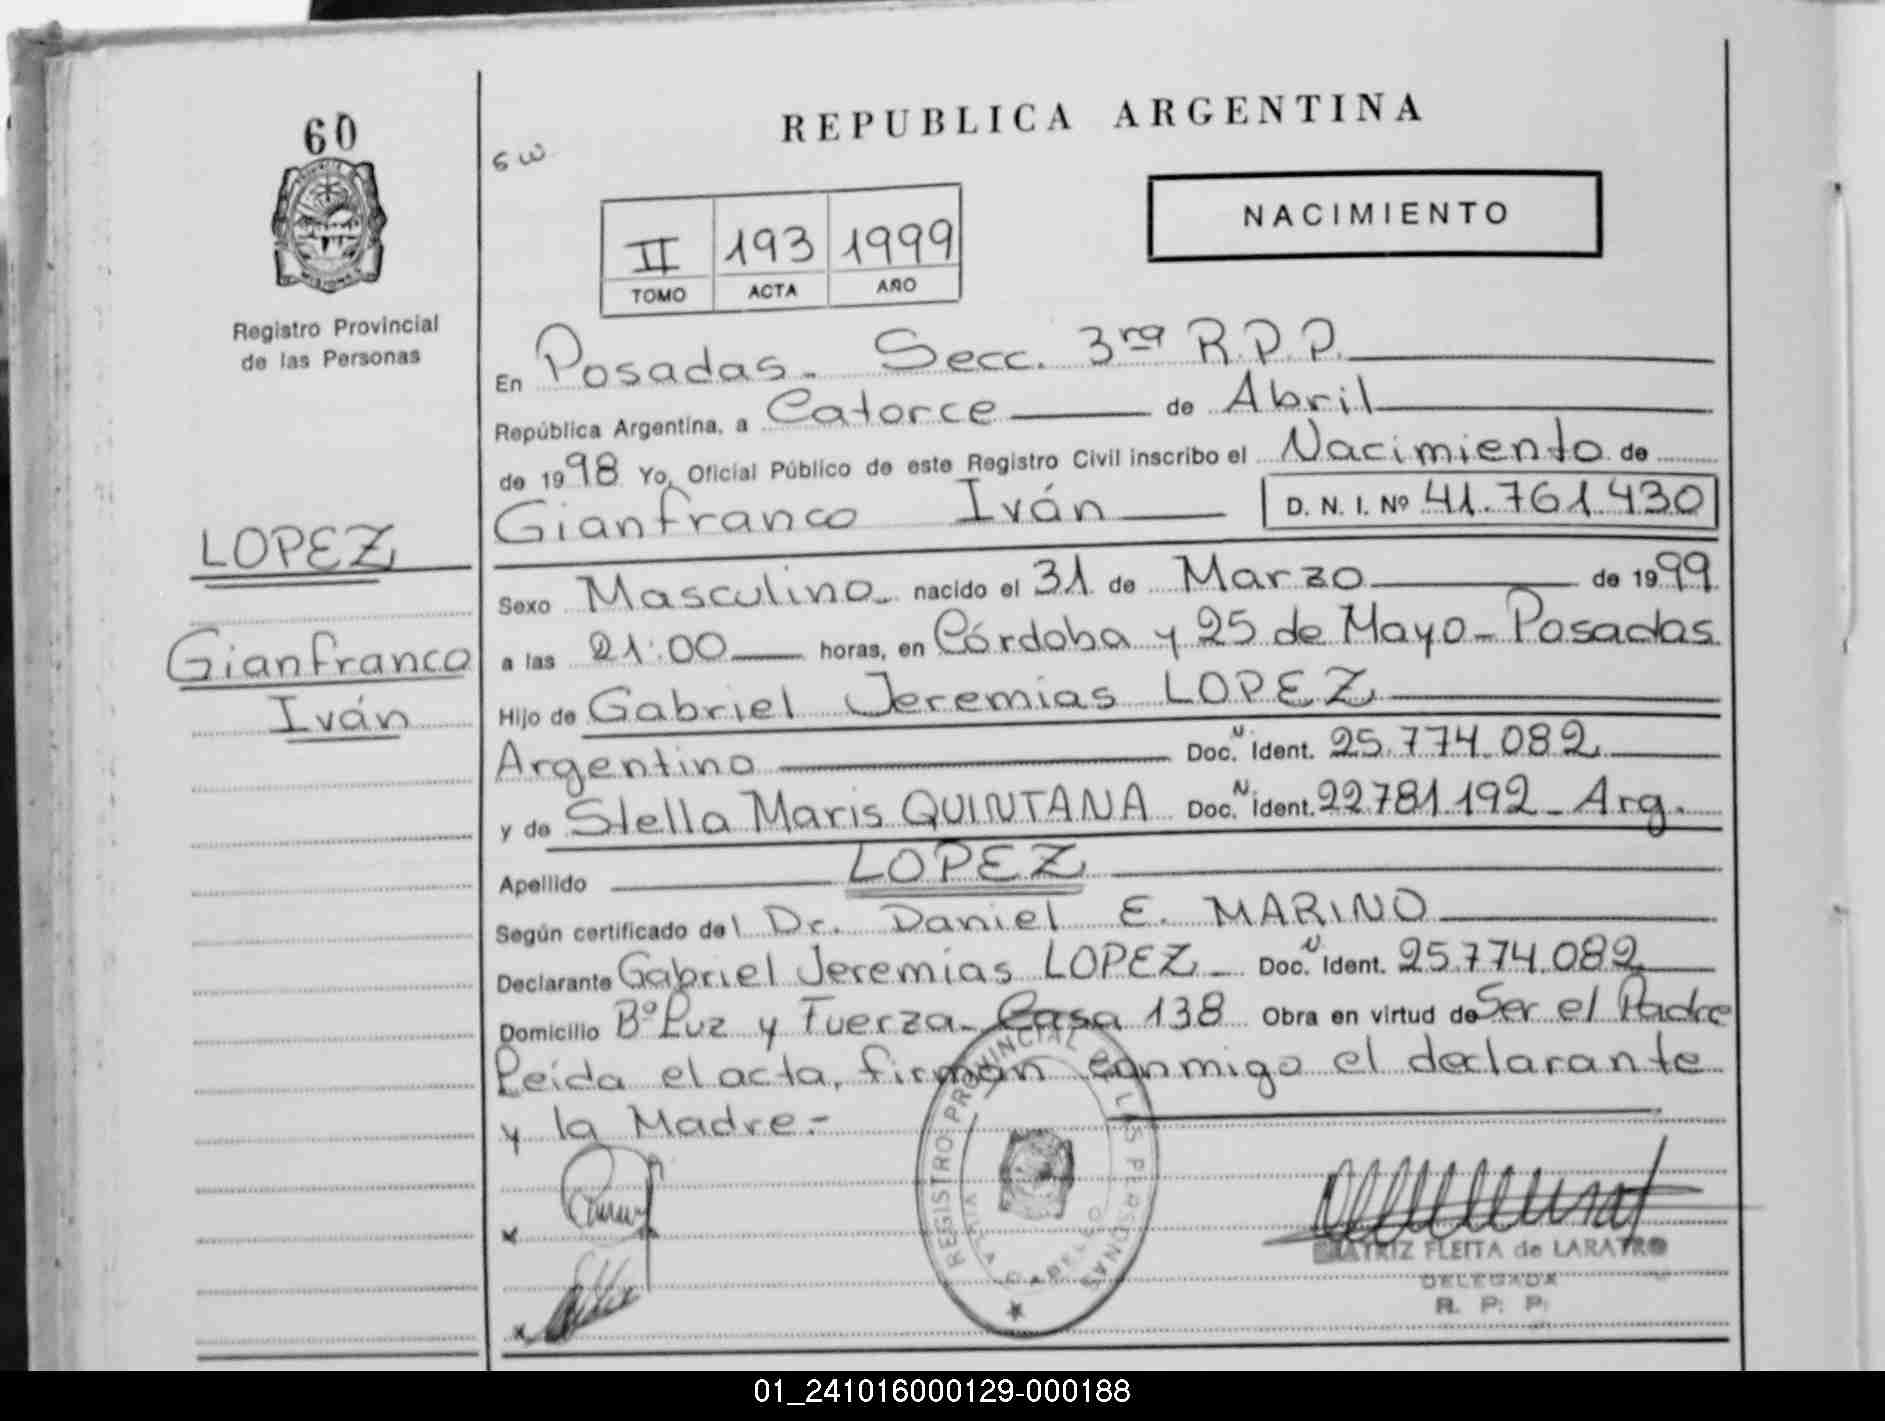 60
Registro Provincial
de las Personas
LOPEZ
Gianfranco
Iván
REPUBLICA ARGENTINA
NACIMIENTO
II 193 1999
TOMO ACTA AÑO
En Posadas. Secc. 3ra R.P.P.
República Argentina, a Catorce de Abril
de 1998 Yo, Oficial Público de este Registro Civil inscribo el Nacimiento de
Gianfranco Iván D. N. I. Nº 41.761.430
Sexo Masculino nacido el 31 de Marzo de 1999
a las 21:00 horas, en Córdoba y 25 de Mayo - Posadas
Hijo de Gabriel Jeremías LOPEZ
Argentino Doc. N Ident. 25.774.082
y de Stella Maris QUINTANA Doc. N Ident. 22.781.192 - Arg.
Apellido LOPEZ
Según certificado del Dr. Daniel E. MARINO
Declarante Gabriel Jeremías LOPEZ - Doc. N Ident. 25.774.082
Domicilio Bº Luz y Fuerza - Casa 138 Obra en virtud de Ser el Padre
Leída el acta, firman conmigo el declarante
y la Madre.-
REGISTRO PROVINCIAL DE LAS PERSONAS
BEATRIZ FLEITA de LARATRO
DELEGADA
R. P. P.
01_241016000129-000188